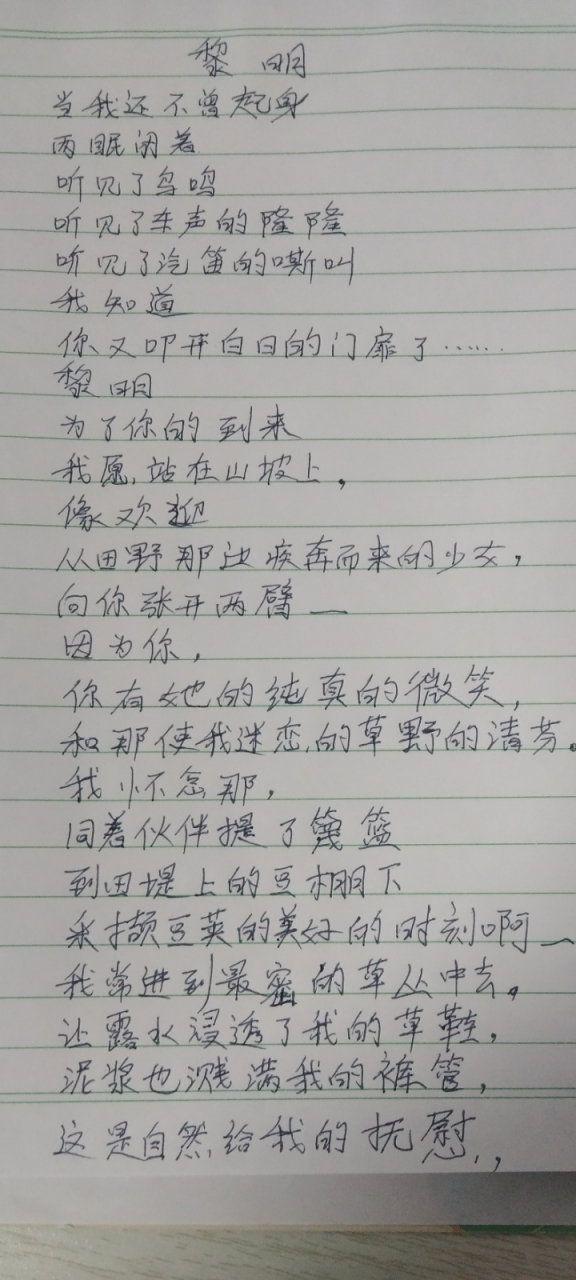 黎明
当我还不曾起身
两眼闭着
听见了鸟鸣
听见了车声的隆隆
听见了汽笛的嘶叫
我知道
你又叩开白日的门扉了……
黎明
为了你的到来
我愿站在山坡上，
像欢迎
从田野那边疾奔而来的少女，
向你张开两臂—
因为你，
你有她的纯真的微笑，
和那使我迷恋的草野的清芬。
我怀念那，
同着伙伴提了篾篮
到田堤上的豆棚下
采撷豆荚的美好的时刻啊—
我常进到最密的草丛中去。
让露水浸透了我的草鞋，
泥浆也溅满我的裤管，
这是自然给我的抚慰，